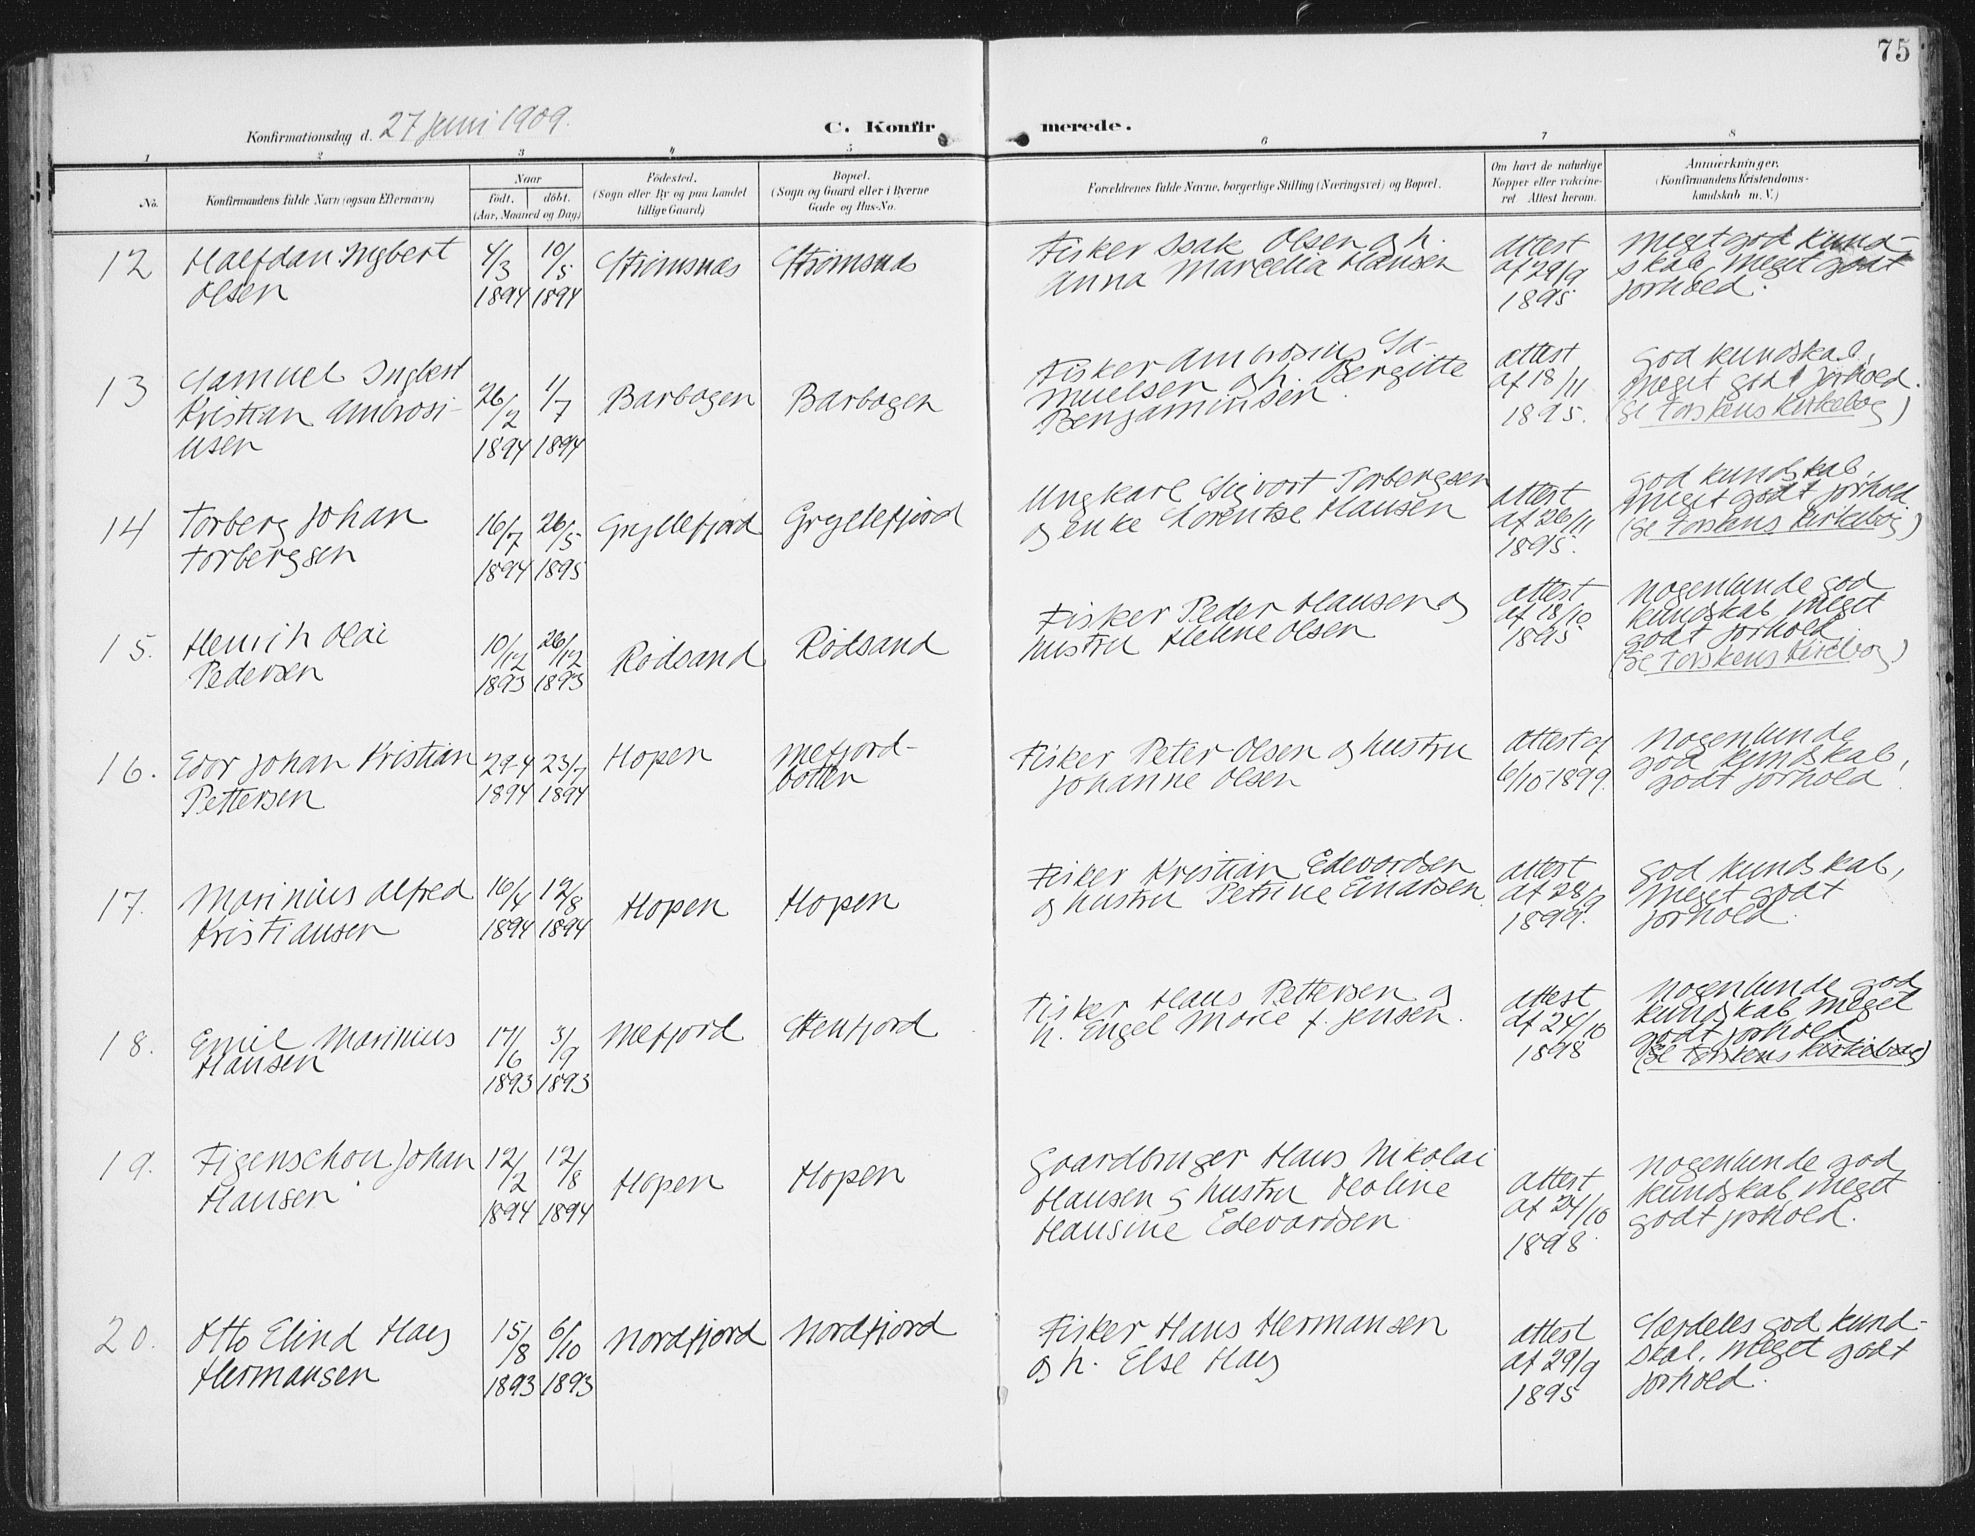 75
Konfirmationsdag d. 27 juni 1909.
C. Konfirmerede.
1 2 3 4 5 6 7 8
No.
Konfirmandens fulde Navn (ogsaa Efternavn)
Naar
födt. döbt.
(Aar, Maaned og Dag)
Födested.
(Sogn eller By og paa Landet
tillige Gaard)
Bopæl.
(Sogn og Gaard eller i Byerne
Gade og Hus-No.
Forældrenes fulde Navne, borgerlige Stilling (Næringsvei) og Bopæl.
Om havt de naturlige
Kopper eller vaccine-
ret Attest herom.
Anmerkninger.
(Konfirmandens Kristendoms-
kundskab m. V.)
12
Halfdan Ingbert
Olsen
4/3
1894
10/5
1894
Strømsnæs
Strømsnæs
Fisker Isak Olsen og h.
Anna Marcelia Hansen
attest
af 29/9
1895
Meget god kund-
skab, meget godt
forhold.
13
Samuel Ingbert
Kristian Ambrosi-
usen
26/2
1894
1/7
1894
Barbogen
Barbogen
Fisker Ambrosius Sa-
muelsen og h. Bergitte
Benjaminsen.
attest
af 18/11
1895.
God kundskab,
meget godt forhold.
(Se Torskens kirkebog)
14
Torberg Johan
Torbergsen
16/7
1894
26/5
1895
Gryllefjord
Gryllefjord
Ungkarl Sigvort Torbergsen
og enke Lorentse Hansen
attest
af 26/11
1895.
God kundskab,
meget godt forhold
(Se Torskens kirkebog)
15.
Henrik Olai
Pedersen
10/12
1893
26/12
1893
Rødsand
Rødsand
Fisker Peder Hansen og
hustru Helene Olsen
attest
af 18/10
1895
Nogenlunde god
kundskab, meget
godt forhold.
(Se Torskens kirkebog)
16.
Edor Johan Kristian
Pettersen
29-4
1894
23/7
1894
Hopen
Mefjord-
botten
Fisker Peter Olsen og hustru
Johanne Olsen
Attest af
6/10 1899.
Nogenlunde
god kundskab,
godt forhold.
17.
Marinius Alfred
Kristiansen
16/4
1894
12/8
1894
Hopen
Hopen
Fisker Kristian Edevardsen
og hustru Petrine Einarsen
attest
af 28/9
1899.
God kundskab,
meget godt
forhold.
18.
Emil Marinius
Hansen
17/6
1893
3/9
1893
Mefjord
Stenfjord
Fisker Hans Pettersen og
h. Engel Marie f. Jensen.
attest
af 24/10
1898
Nogenlunde god
kundskab, meget
godt forhold
(Se Torskens kirkebog)
19.
Figenschou Johan
Hansen
12/2
1894
12/8
1894
Hopen
Hopen
Gaardbruger Hans Nikolai
Hansen og hustru Ololine
Hansine Edevardsen
attest
af 24/10
1898.
Nogenlunde god
kundskab, meget
godt forhold.
20.
Otto Elind Hay
Hermansen
15/8
1893
6/10
1893
Nordfjord
Nordfjord
Fisker Hans Hermansen
og h. Else Hay
attest
af 29/9
1895
Særdeles god kund-
skab, meget godt
forhold.